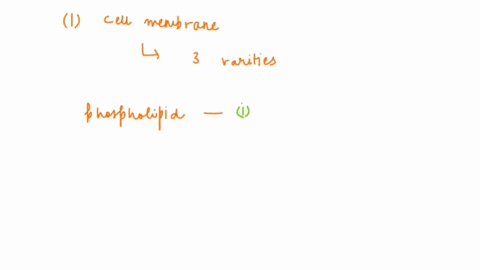 (1) cell membrane
↳ 3 rarities
phospholipid — (i)